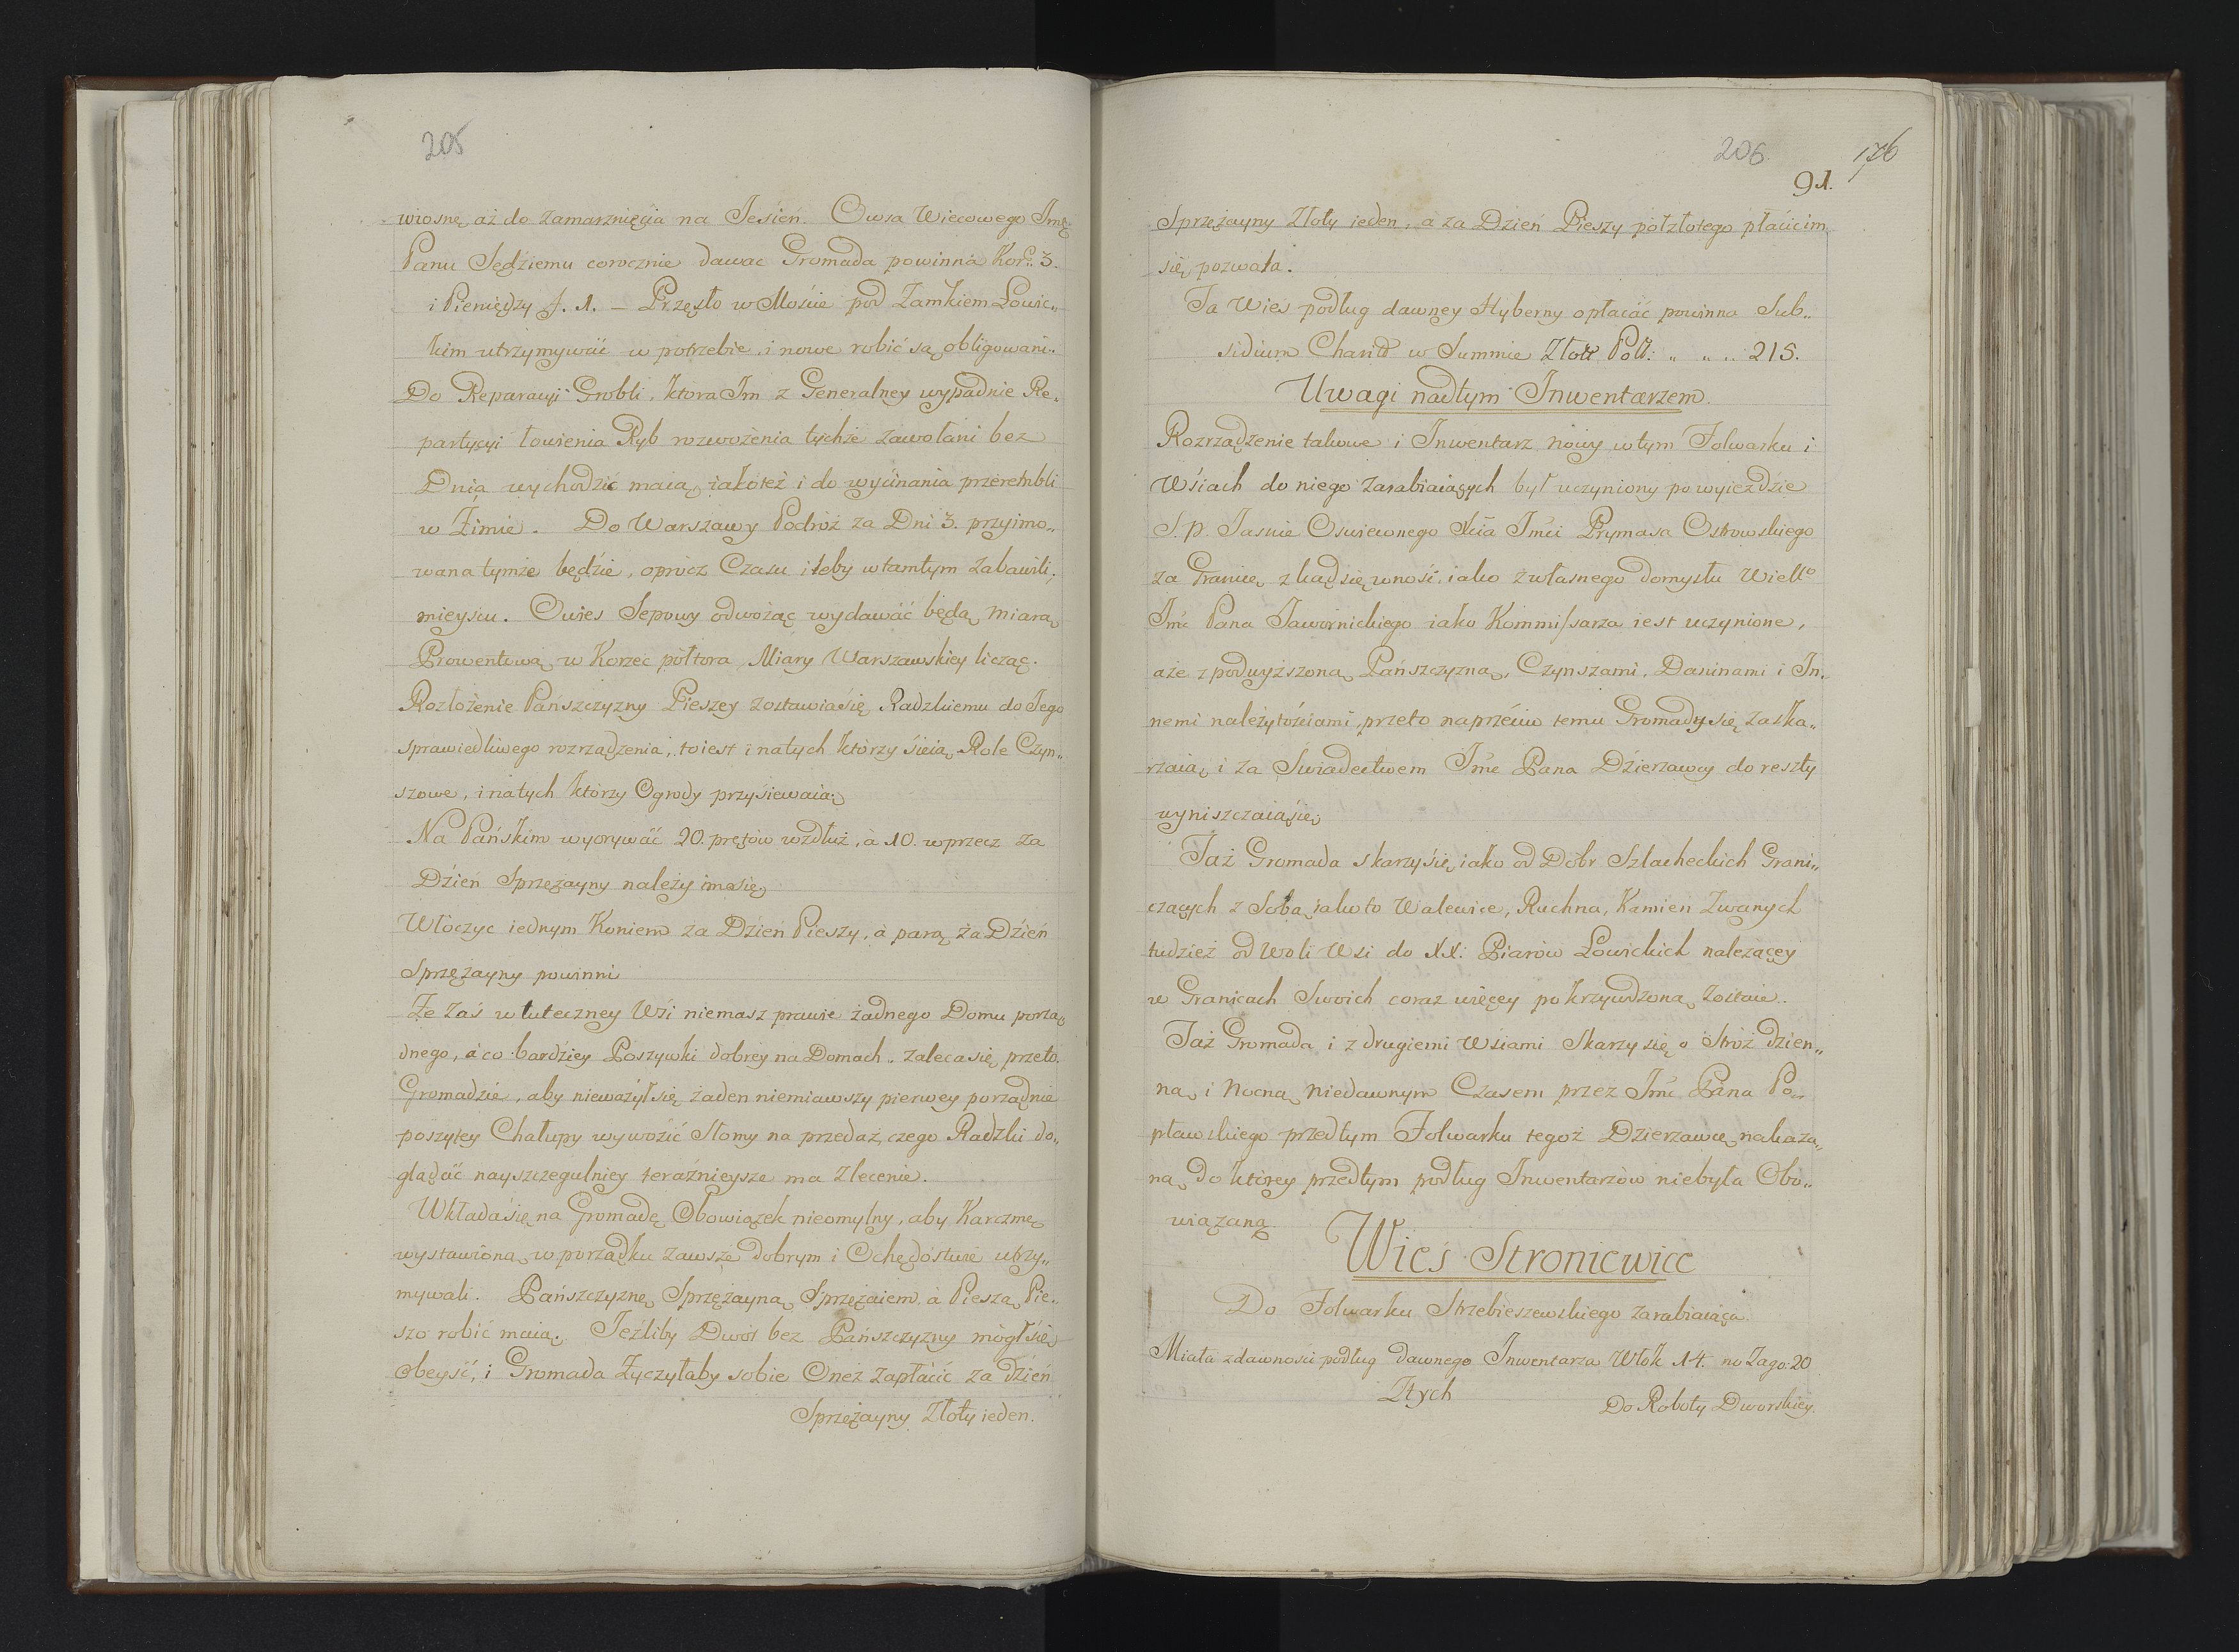 205
wiosnę, aż do zamarznięcia na Jesień. Owsa Wiecowego Imę
Panu Sędziemu corocznie dawac Gromada powinna Kor: 3.
i Pieniędzy f. 1. — Przęsło w Moście pod Zamkiem Łowic„
kim utrzymywać w potrzebie, i nowe robić są obligowani.
Do Reparacyi Grobli, ktora Im z Generalney wypadnie Re„
partycyi łowienia Ryb rozwożenia tychże zawołani bez
Dnia wychodzić maią, iakoteż i do wycinania przerembli
w Zimie. Do Warszawy Podróż za Dni 3. przyimo„
wana tymże będzie, oprocz Czasu iżeby w tamtym zabawili„
mieyscu. Owies Sepowy odwożąc wydawać będą miarą
Prowentową w Korzec połtora Miary Warszawskiey licząc.
Rozłożenie Pańszczyzny Pieszey zostawia się Radzkiemu do Jego
sprawiedliwego rozrządzenia, toiest i na tych ktorzy sieią Role Czyn„
szowe, i na tych ktorzy Ogrody przysiewaią.
Na Pańskim wyorywać 20. prętów wzdłuż, à 10. wprzecz za
Dzień Sprzężayny należy ima się
Włoczyc iednym Koniem za Dzień Pieszy, à parą za Dzień
Sprzężayny powinni
Że zaś w tuteczney Wsi niemasz prawie żadnego Domu porzą„
dnego, à co bardziey Poszywki dobrey na Domach, zaleca się przeto
Gromadzie, aby nieważył się żaden niemiawszy pierwey porządnie
poszytey Chałupy wywozić Słomy na przedaż, czego Radzki do„
glądać nayszczegulniey teraźnieysze ma zlecenie.
Wkłada się na Gromadę Obowiązek nieomylny, aby Karczmę
wystawioną w porządku zawsze dobrym i Ochędostwie utrzy„
mywali. Pańszczyznę Sprzężayną Sprzężaiem, à Pieszą Pie„
szo robić maią. Jeżliby Dwór bez Pańszczyzny mógł się
obeyść, i Gromada Życzyłaby sobie Oneż zapłacić za dzień
Sprzężayny Złoty ieden.
206. 176
91.
Sprzężayny Złoty ieden, à za Dzień Pieszy połzłotego płacić im
się pozwala.
Ta Wieś podług dawney Hyberny opłacać powinna Sub„
sidium Charitt w Summie Złott Poll: „ „ „ 215.
Uwagi nad tym Inwentarzem.
Rozrządzenie takowe i Inwentarz nowy w tym Folwarku i
Wsiach do niego zarabiaiących był uczyniony po wyieździe
S. p. Jasnie Oswieconego Xcia Jmci Prymasa Ostrowskiego
za Granicę zkąd się wnosi, iako z własnego domysłu Wiello
Jmć Pana Jawornickiego iako Kommissarza iest uczynione,
aże z podwyższoną Pańszczyzną, Czynszami, Daninami i In„
nemi należytościami, przeto naprzeciw temu Gromady się zaska„
rzaią i za Swiadectwem Jmć Pana Dzierzawcy do reszty
wyniszczaią się
Taż Gromada skarzy się iako od Dobr Szlacheckich Grani„
czących z Sobą iako to Walewice, Ruchna, Kamien Zwanych
tudzież od Woli Wsi do XX: Piarów Łowickich należącey
w Granicach Swoich coraz więcey pokrzywdzoną zostaie.
Taż Gromada i z drugiemi Wsiami Skarzy się o Stróż dzien„
ną i Nocną niedawnym Czasem przez Jmć Pana Po„
pławskiego przedtym Folwarku tegoż Dzierzawcę nakaza„
ną do ktorey przedtym podług Inwentarzów niebyła Obo„
wiązaną.
Wieś Stroniewice
Do Folwarku Strzebieszewskiego zarabiaiąca.
Miała z dawnosci podług dawnego Inwentarza Włok 14. no Zago: 20
Ztych
Do Roboty Dworskiey.